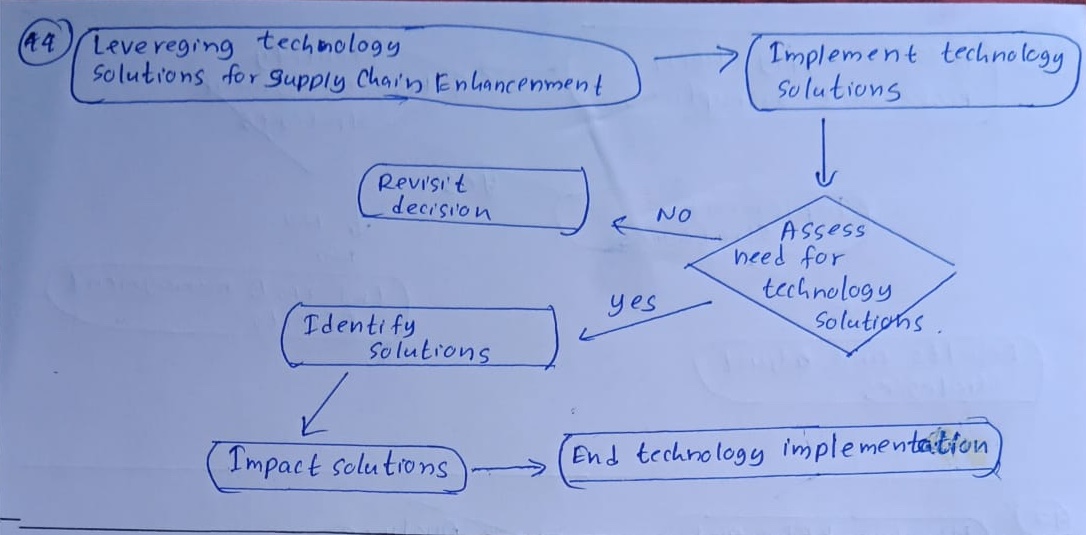 44
Levereging technology
solutions for supply Chain Enhancenment
Implement technology
solutions
Revisit
decision
NO
Assess
need for
technology
solutions.
yes
Identify
solutions
Impact solutions
End technology implementation